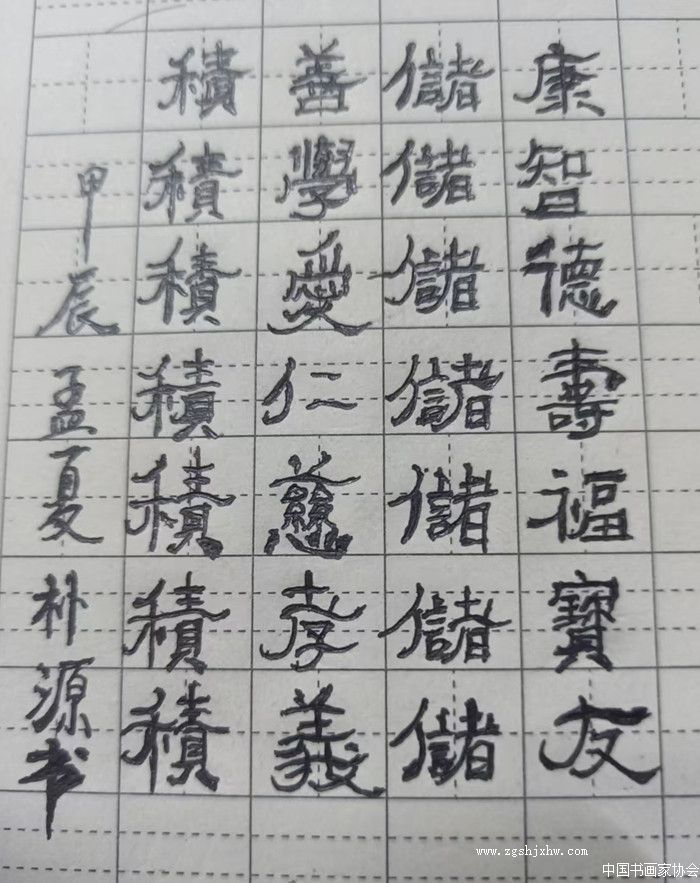 積善儲康
積學儲智
積愛儲德
積仁儲壽
積慈儲福
積孝儲寶
積義儲友
甲辰孟夏朴源书
www.zgshjxhw.com
中国书画家协会